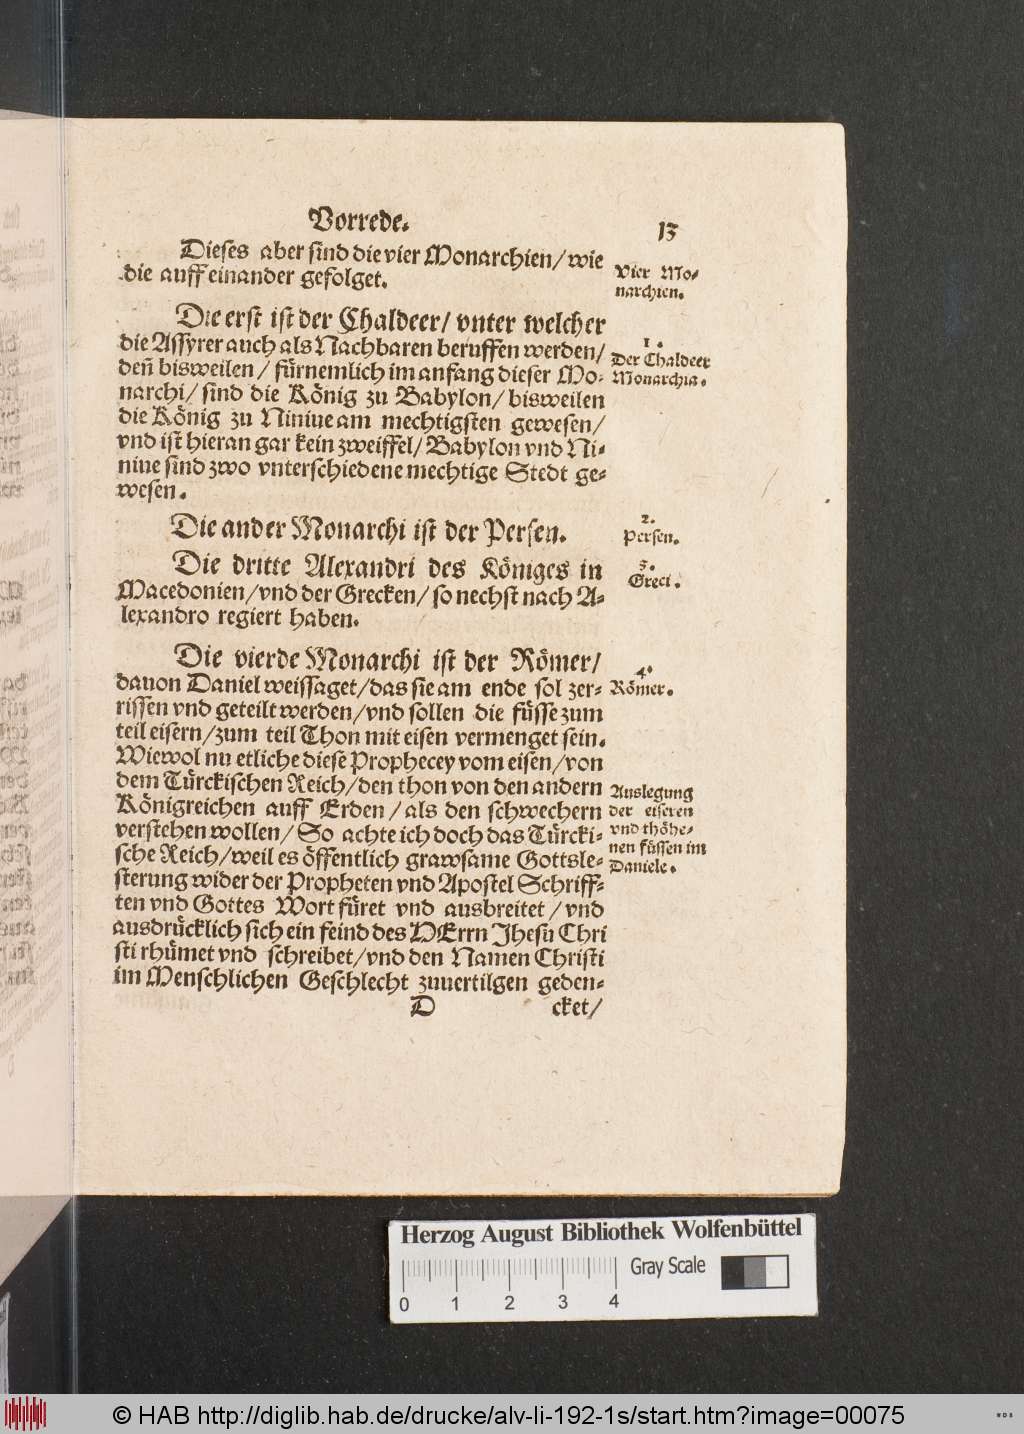 Vorrede.
13
Dieses aber sind die vier Monarchien/ wie
die auff einander gefolget.
Vier Mo-
narchien.
Die erst ist der Chaldeer/ vnter welcher
die Assyrer auch als Nachbaren beruffen werden/
deñ bisweilen/ fürnemlich im anfang dieser Mo-
narchi/ sind die König zu Babylon/ bisweilen
die König zu Niniue am mechtigsten gewesen/
vnd ist hieran gar kein zweiffel/ Babylon vnd Ni-
niue sind zwo vnterschiedene mechtige Stedt ge-
wesen.
1.
Der Chaldeer
Monarchia.
Die ander Monarchi ist der Persen.
2.
Persen.
Die dritte Alexandri des Königes in
Macedonien/ vnd der Grecken/ so nechst nach A-
lexandro regiert haben.
3.
Greci.
Die vierde Monarchi ist der Römer/
dauon Daniel weissaget/ das sie am ende sol zer-
rissen vnd geteilt werden/ vnd sollen die füsse zum
teil eisern/ zum teil Thon mit eisen vermenget sein.
Wiewol nu etliche diese Prophecey vom eisen/ von
dem Türckischen Reich/ den thon von den andern
Königreichen auff Erden/ als den schwechern
verstehen wollen/ So achte ich doch das Türcki-
sche Reich/ weil es öffentlich grawsame Gottsle-
sterung wider der Propheten vnd Apostel Schriff-
ten vnd Gottes Wort füret vnd ausbreitet/ vnd
ausdrücklich sich ein feind des HErrn Jhesu Chri
sti rhümet vnd schreibet/ vnd den Namen Christi
im Menschlichen Geschlecht zuuertilgen geden-
4.
Römer.
Auslegung
der eiseren
vnd thöhe-
nen füssen im
Daniele.
D
cket/
Herzog August Bibliothek Wolfenbüttel
Gray Scale
0 1 2 3 4
© HAB http://diglib.hab.de/drucke/alv-li-192-1s/start.htm?image=00075